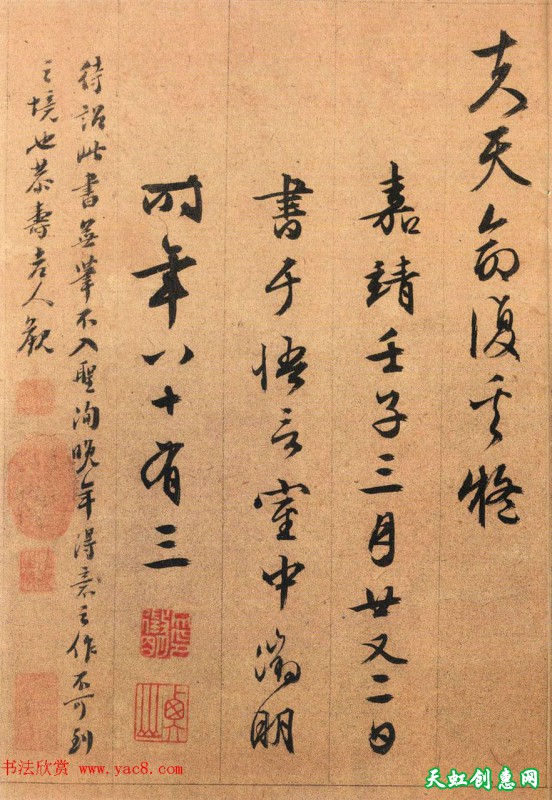 夫天命復奚疑
嘉靖壬子三月廿又二日
書于悟言室中徵明
時年八十有三
待詔此書無筆不入聖洵晚年得意之作不可到
之境也恭壽老人觀
书法欣赏 www.yac8.com
天虹创惠网